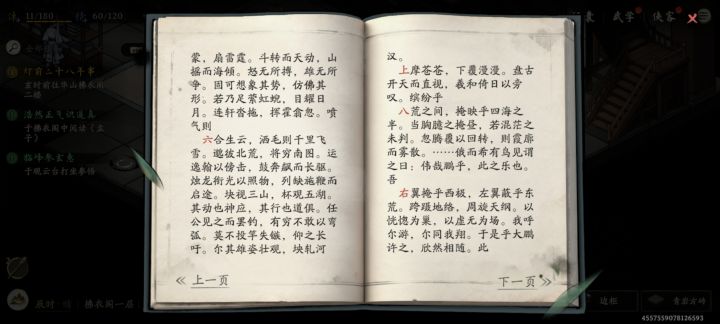 11/180
60/120
武学
侠客
灯前二十八年事
亥时前往华山拂衣阁
二楼
浩然正气识道真
于拂衣阁中阅读《孟
子》
临峰参玄意
于观云台打坐参悟
蒙，扇雷霆。斗转而天动，山
摇而海倾。怒无所搏，雄无所
争。固可想象其势，仿佛其
形。若乃足萦虹蜺，目耀日
月。连轩沓拖，挥霍翕忽。喷
气则
六合生云，洒毛则千里飞
雪。邈彼北荒，将穷南图。运
逸翰以傍击，鼓奔飙而长驱。
烛龙衔光以照物，列缺施鞭而
启途。块视三山，杯观五湖。
其动也神应，其行也道俱。任
公见之而罢钓，有穷不敢以弯
弧。莫不投竿失镞，仰之长
吁。尔其雄姿壮观，块轧河
上一页
汉。
上摩苍苍，下覆漫漫。盘古
开天而直视，羲和倚日以旁
叹。缤纷乎
八荒之间，掩映乎四海之
半。当胸臆之掩昼，若混茫之
未判。忽腾覆以回转，则霞廓
而雾散。……俄而希有鸟见谓
之曰：伟哉鹏乎，此之乐也。
吾
右翼掩乎西极，左翼蔽乎东
荒。跨蹑地络，周旋天纲。以
恍惚为巢，以虚无为场。我呼
尔游，尔同我翔。于是乎大鹏
许之，欣然相随。此
下一页
辰时·晴
拂衣阁一层
边柜
青岩方砖
4557559078126593